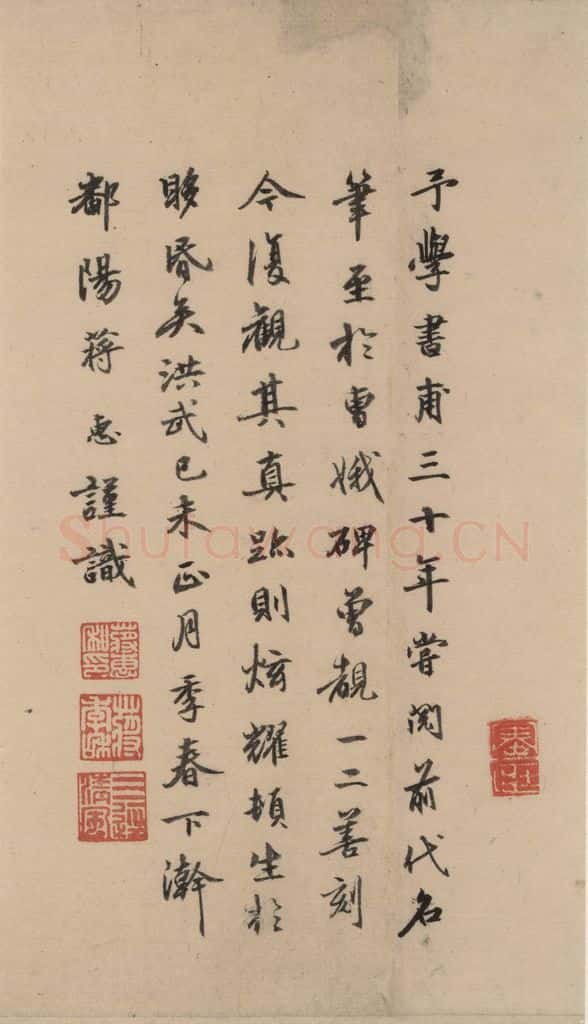 予學書甫三十年嘗閱前代名
筆至於曹娥碑曾覩一二善刻
今復觀其真跡則炫耀頓生於
眵昏矣洪武己未正月季春下澣
鄱陽蔣惠謹識
蔣惠私印
三逕清風
Shufawang.CN